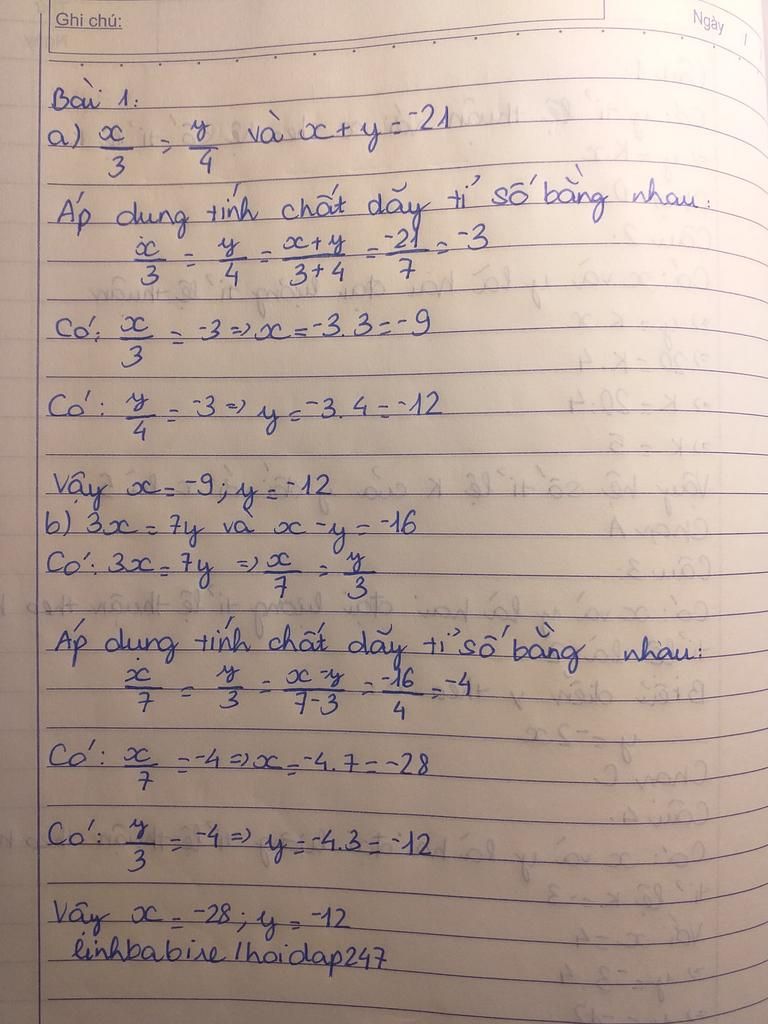 Ghi chú:
Ngày
Bài 1:
a) x/3 = y/4 và x + y = -21
Áp dung tính chất dãy tỉ số bằng nhau:
x/3 = y/4 = (x+y)/(3+4) = -21/7 = -3
Có: x/3 = -3 => x = -3.3 = -9
Có: y/4 = -3 => y = -3.4 = -12
Vậy x = -9; y = -12
b) 3x = 7y và x - y = -16
Có: 3x = 7y => x/7 = y/3
Áp dung tính chất dãy tỉ số bằng nhau:
x/7 = y/3 = (x-y)/(7-3) = -16/4 = -4
Có: x/7 = -4 => x = -4.7 = -28
Có: y/3 = -4 => y = -4.3 = -12
Vậy x = -28; y = -12
/hoidap247